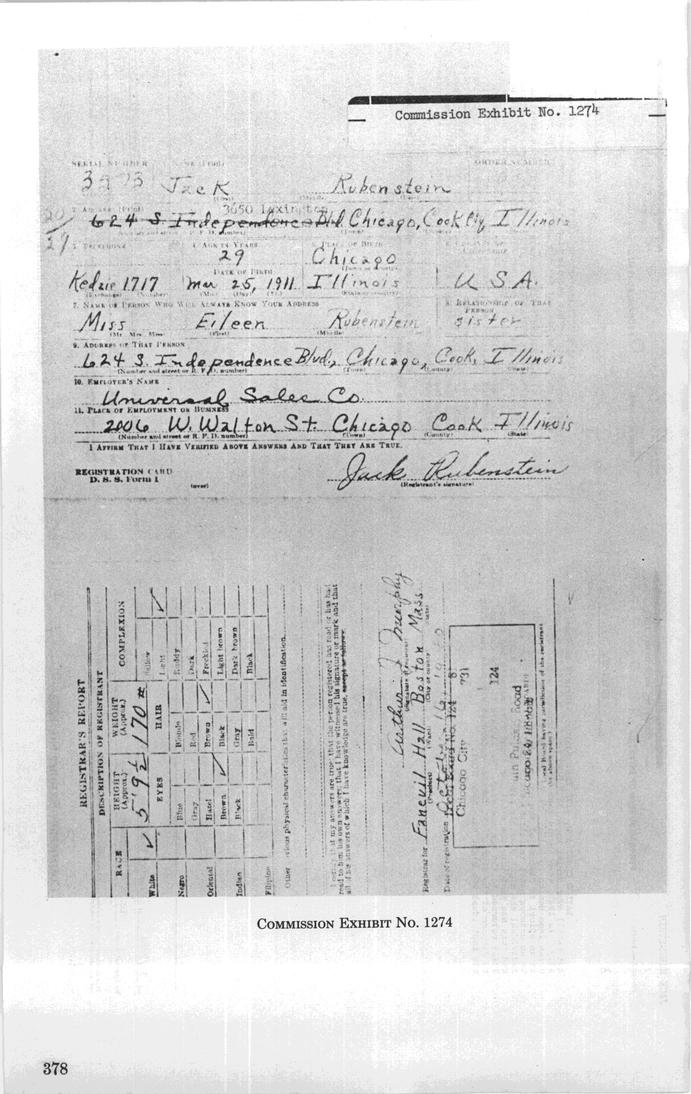 Commission Exhibit No. 1274
SERIAL NUMBER
ORDER NUMBER
Jack Rubenstein
3650 Lexington
624 S. Independence Blvd. Chicago, Cook Cty, Illinois
29 Chicago
AGE IN YEARS PLACE OF BIRTH
DATE OF BIRTH
Kedzie 1717 Mar 25, 1911 Illinois U.S.A.
7. NAME OF PERSON WHO WILL ALWAYS KNOW YOUR ADDRESS
8. RELATIONSHIP OF THAT PERSON
Miss Eileen Rubenstein sister
(Mr. Mrs. Miss) (First) (Middle)
9. ADDRESS OF THAT PERSON
624 S. Independence Blvd., Chicago, Cook, Illinois
(Number and street or R. F. D. number) (Town) (County) (State)
10. EMPLOYER'S NAME
Universal Sales Co.
11. PLACE OF EMPLOYMENT OR BUSINESS
2006 W. Walton St. Chicago Cook Illinois
(Number and street or R. F. D. number) (Town) (County) (State)
I AFFIRM THAT I HAVE VERIFIED ABOVE ANSWERS AND THAT THEY ARE TRUE.
REGISTRATION CARD
D. S. S. Form 1
(over)
Jack Rubenstein
(Registrant's signature)
REGISTRAR'S REPORT
DESCRIPTION OF REGISTRANT
RACE
HEIGHT (Approx.)
WEIGHT (Approx.)
COMPLEXION
5' 9½
170 #
EYES
HAIR
White
Negro
Oriental
Indian
Filipino
Blue
Gray
Hazel
Brown
Black
Blonde
Red
Brown
Black
Gray
Bald
Sallow
Light
Ruddy
Dark
Freckled
Light brown
Dark brown
Black
Other obvious physical characteristics that will aid in identification
I certify that my answers are true; that the person registered has read or has had
read to him his own answers; that I have witnessed his signature or mark and that
all of his answers of which I have knowledge are true, except as follows:
Arthur J. Murphy
Registrar for Faneuil Hall Boston Mass.
Date of registration October 16, 1940
Local Board No. 124
Chicago City
731
124
COMMISSION EXHIBIT NO. 1274
378